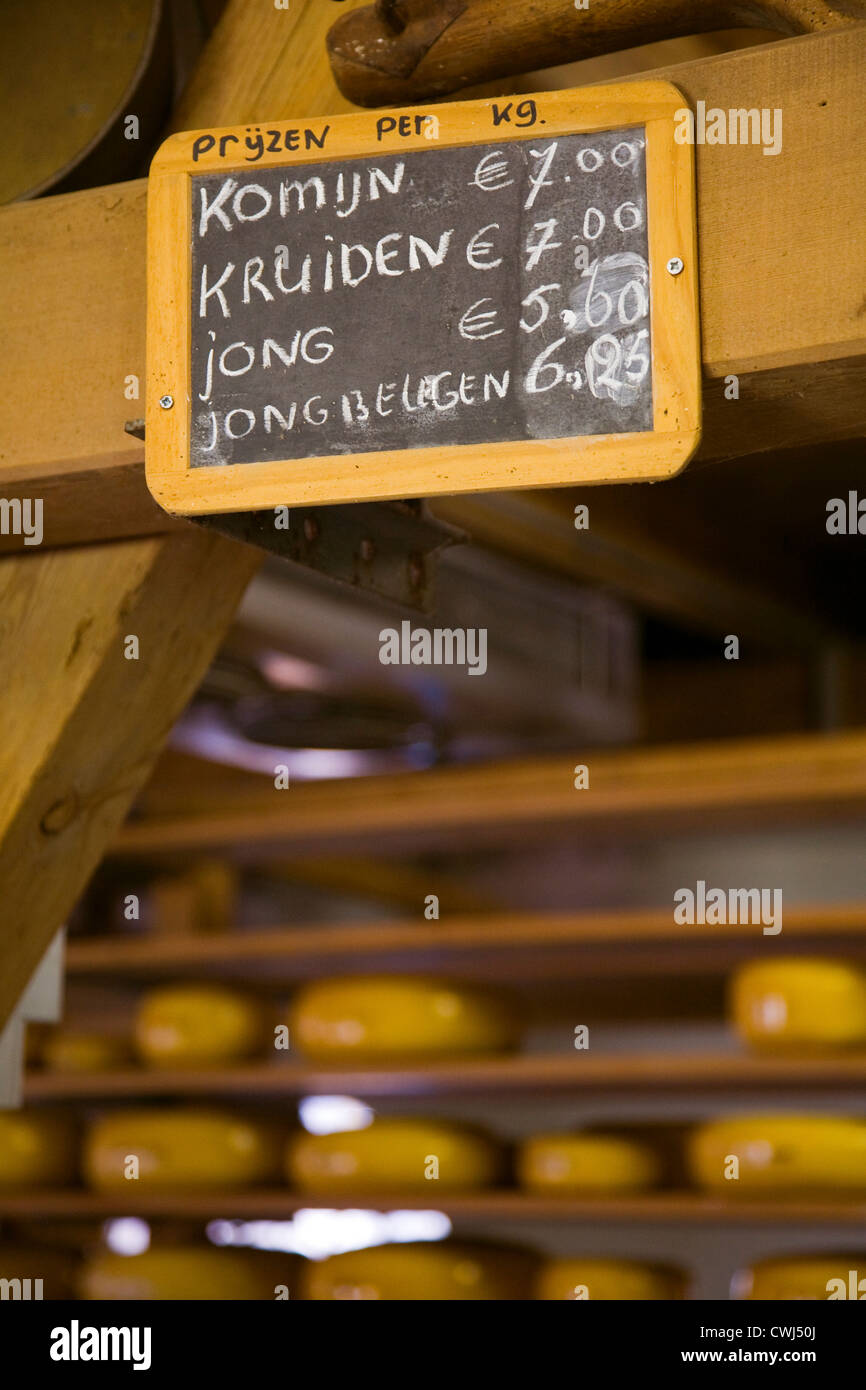 PRIJZEN PER KG.
KOMIJN € 7.00
KRUIDEN € 7.00
JONG € 5,60
JONG BELEGEN 6,25
alamy
a
alamy
a
alamy
alamy
Image ID: CWJ50J
www.alamy.com